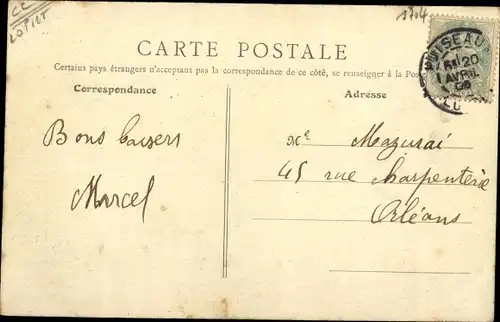 CC
LOIRET
1704
CARTE POSTALE
Certains pays étrangers n'acceptant pas la correspondance de ce côté, se renseigner à la Poste
Correspondance
Adresse
PUISEAUX
20
AVRIL
Bons baisers
Marcel
Me Mazurai
45 rue Charpenterie
Orléans